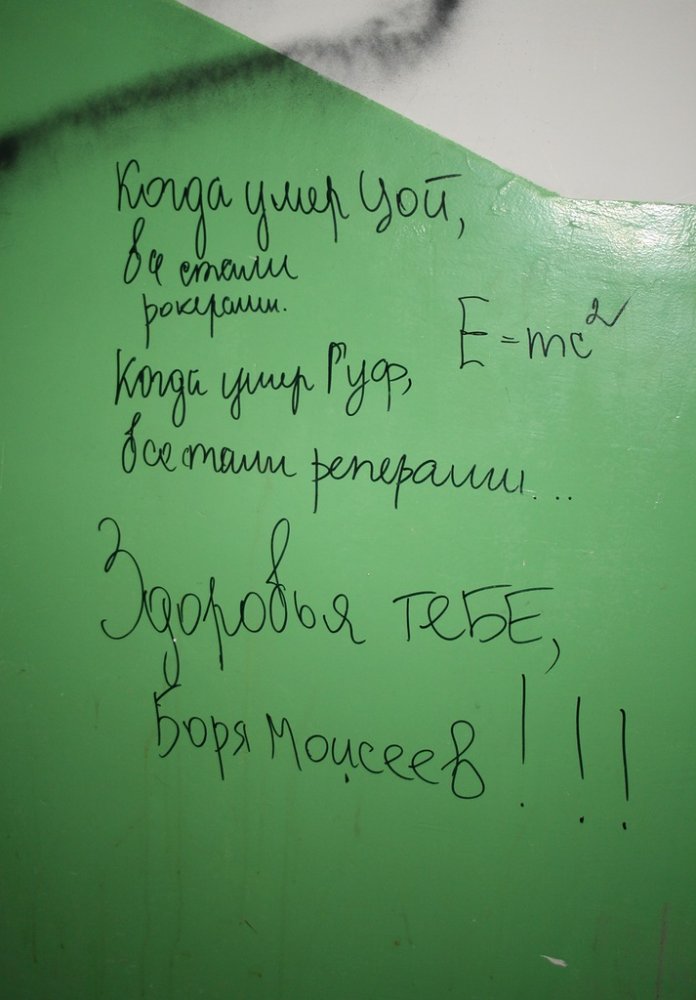 Когда умер Цой,
все стали
рокерами.
E=mc²
Когда умер Гуф,
все стали реперами...
Здоровья тебЕ,
Боря Моисеев!!!